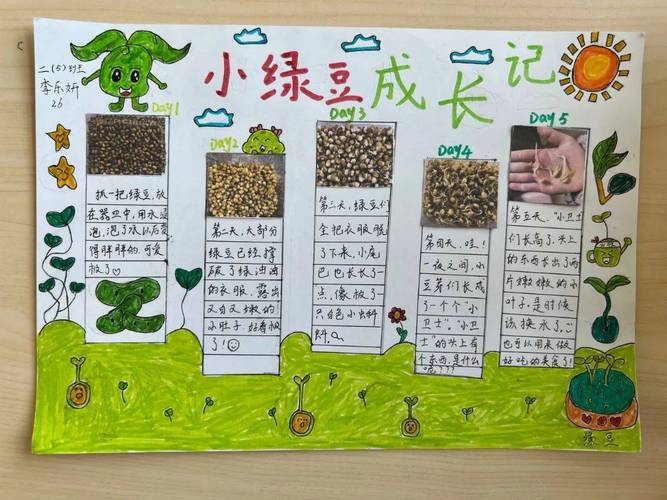 小绿豆成长记
二(5)班
李乐妍
26
Day1
抓一把绿豆,放
在器皿中,用水浸
泡,泡了水以后变
得胖胖的,可爱
极了
Day2
第二天,大部分
绿豆已经撑
破了绿油油
的衣服,露出
又白又嫩的
小肚子,好看极
了!
Day3
第三天,绿豆们
全把衣服脱
了下来,小尾
巴也长长了一
点,像极了一
只只白色小蝌
蚪。
Day4
第四天,哇!
一夜之间,小
豆芽们长成
了一个个"小
卫士","小卫
士"的头上有
个东西,是什么
呢???
Day5
第五天,"小卫士"
们长高了,头上
的东西长出了两
片嫩嫩的小
叶子,是时候
该换水了,
也可以用来做
好吃的美食了!
绿豆